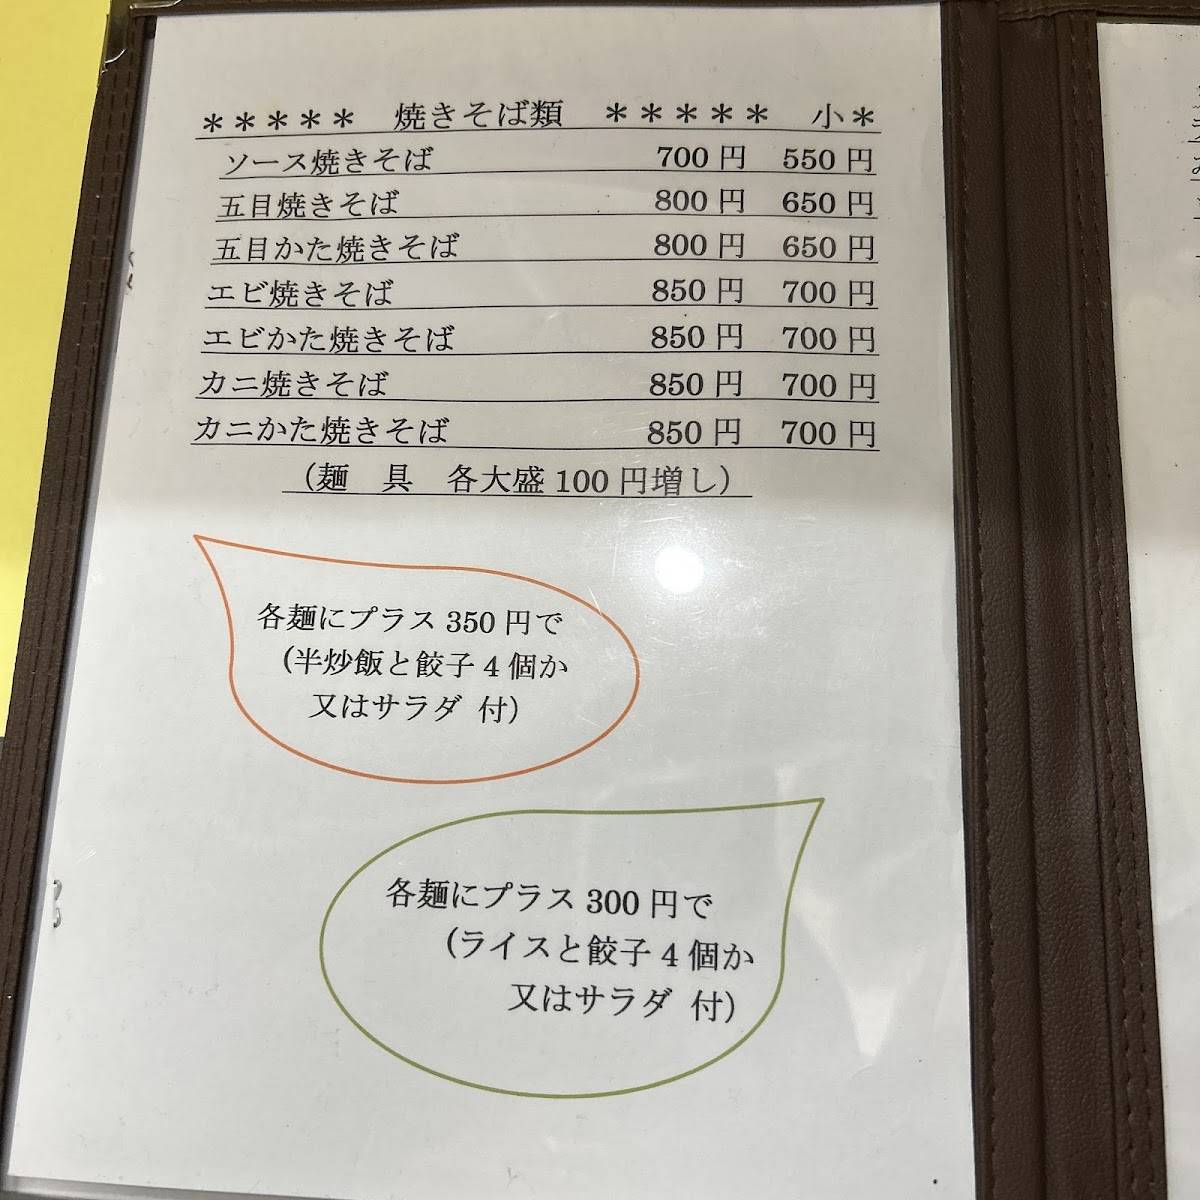 ＊＊＊＊＊　焼きそば類　＊＊＊＊＊　小＊
ソース焼きそば　700 円　550 円
五目焼きそば　800 円　650 円
五目かた焼きそば　800 円　650 円
エビ焼きそば　850 円　700 円
エビかた焼きそば　850 円　700 円
カニ焼きそば　850 円　700 円
カニかた焼きそば　850 円　700 円
（麺　具　各大盛 100 円増し）
各麺にプラス 350 円で
（半炒飯と餃子 4 個か
又はサラダ 付）
各麺にプラス 300 円で
（ライスと餃子 4 個か
又はサラダ 付）